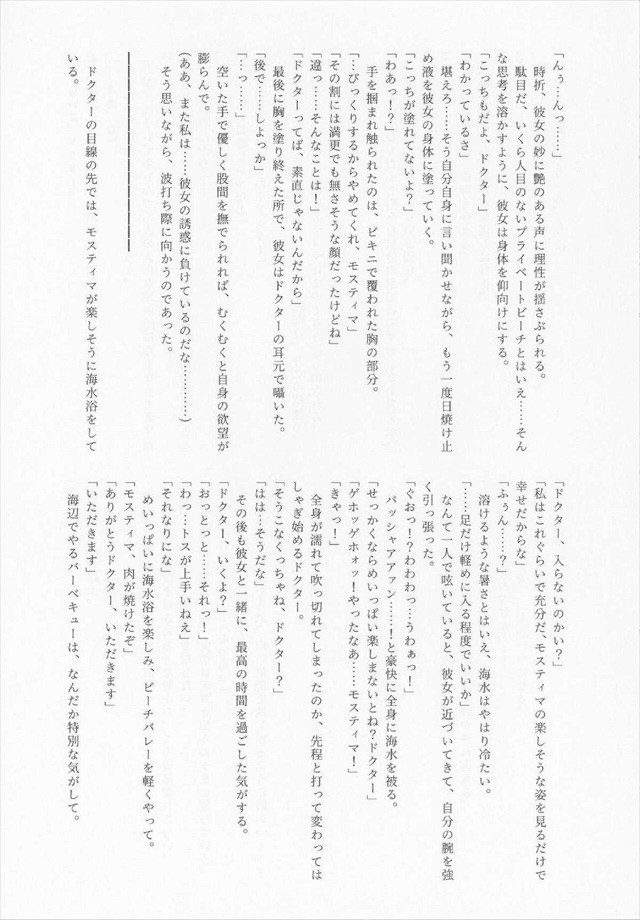 「んぅ…んっ……」
時折、彼女の妙に艶のある声に理性が揺さぶられる。
駄目だ、いくら人目のないプライベートビーチとはいえ……そん
な思考を溶かすように、彼女は身体を仰向けにする。
「こっちもだよ、ドクター」
「わかっているさ」
堪えろ……そう自分自身に言い聞かせながら、もう一度日焼け止
め液を彼女の身体に塗っていく。
「こっちが塗れてないよ？」
「わあっ！？」
手を掴まれ触られたのは、ビキニで覆われた胸の部分。
「…びっくりするからやめてくれ、モスティマ」
「その割には満更でも無さそうな顔だったけどね」
「違っ……そんなことは！」
「ドクターってば、素直じゃないんだから」
最後に胸を塗り終えた所で、彼女はドクターの耳元で囁いた。
「後で……しよっか」
「…っ……」
空いた手で優しく股間を撫でられれば、むくむくと自身の欲望が
膨らんで。
(ああ、また私は……彼女の誘惑に負けているのだな…………)
そう思いながら、波打ち際に向かうのであった。
ドクターの目線の先では、モスティマが楽しそうに海水浴をして
いる。
「ドクター、入らないのかい？」
「私はこれぐらいで充分だ、モスティマの楽しそうな姿を見るだけで
幸せだからな」
「ふぅん……？」
溶けるような暑さとはいえ、海水はやはり冷たい。
「……足だけ軽めに入る程度でいいか」
なんて一人で呟いていると、彼女が近づいてきて、自分の腕を強
く引っ張った。
「ぐおっ！？わわわっ…うわぁっ！」
バッシャアアァン……！と豪快に全身に海水を被る。
「せっかくならめいっぱい楽しまないとね？ドクター」
「ゲホッゲホォッ！やったなあ……モスティマ！」
「きゃっ！」
全身が濡れて吹っ切れてしまったのか、先程と打って変わっては
しゃぎ始めるドクター。
「そうこなくっちゃね、ドクター？」
「はは…そうだな」
その後も彼女と一緒に、最高の時間を過ごした気がする。
「ドクター、いくよ？」
「おっとっと……それっ！」
「わっ…トスが上手いねえ」
「それなりにな」
めいっぱいに海水浴を楽しみ、ビーチバレーを軽くやって。
「モスティマ、肉が焼けたぞ」
「ありがとうドクター、いただきます」
「いただきます」
海辺でやるバーベキューは、なんだか特別な気がして。